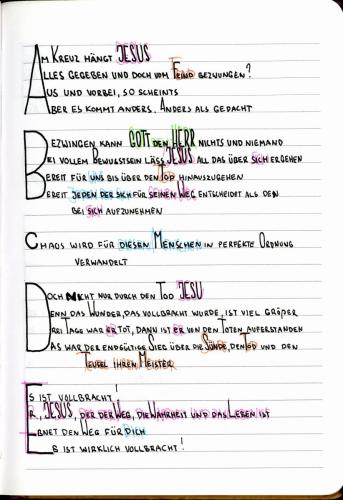 Am Kreuz hängt JESUS
Alles gegeben und doch vom Feind bezwungen?
Aus und vorbei, so scheints
Aber es kommt anders, Anders als gedacht
Bezwingen kann GOTT den HERR nichts und niemand
Bei vollem Bewusstsein läss JESUS all das über sich ergehen
Bereit für uns bis über den Tod hinauszugehen
Bereit jeden der sich für seinen Weg entscheidet als den
bei sich aufzunehmen
Chaos wird für diesen Menschen in perfekte Ordnung
verwandelt
Doch nicht nur durch den Tod JESU
Denn das Wunder, das vollbracht wurde, ist viel größer
Drei Tage war er tot, dann ist er von den Toten auferstanden
Das war der endgültige Sieg über die Sünde, den Tod und den
Teufel ihren Meister
Es ist vollbracht!
Er, JESUS, der der Weg, die Wahrheit und das Leben ist
Ebnet den Weg für dich
Es ist wirklich vollbracht!